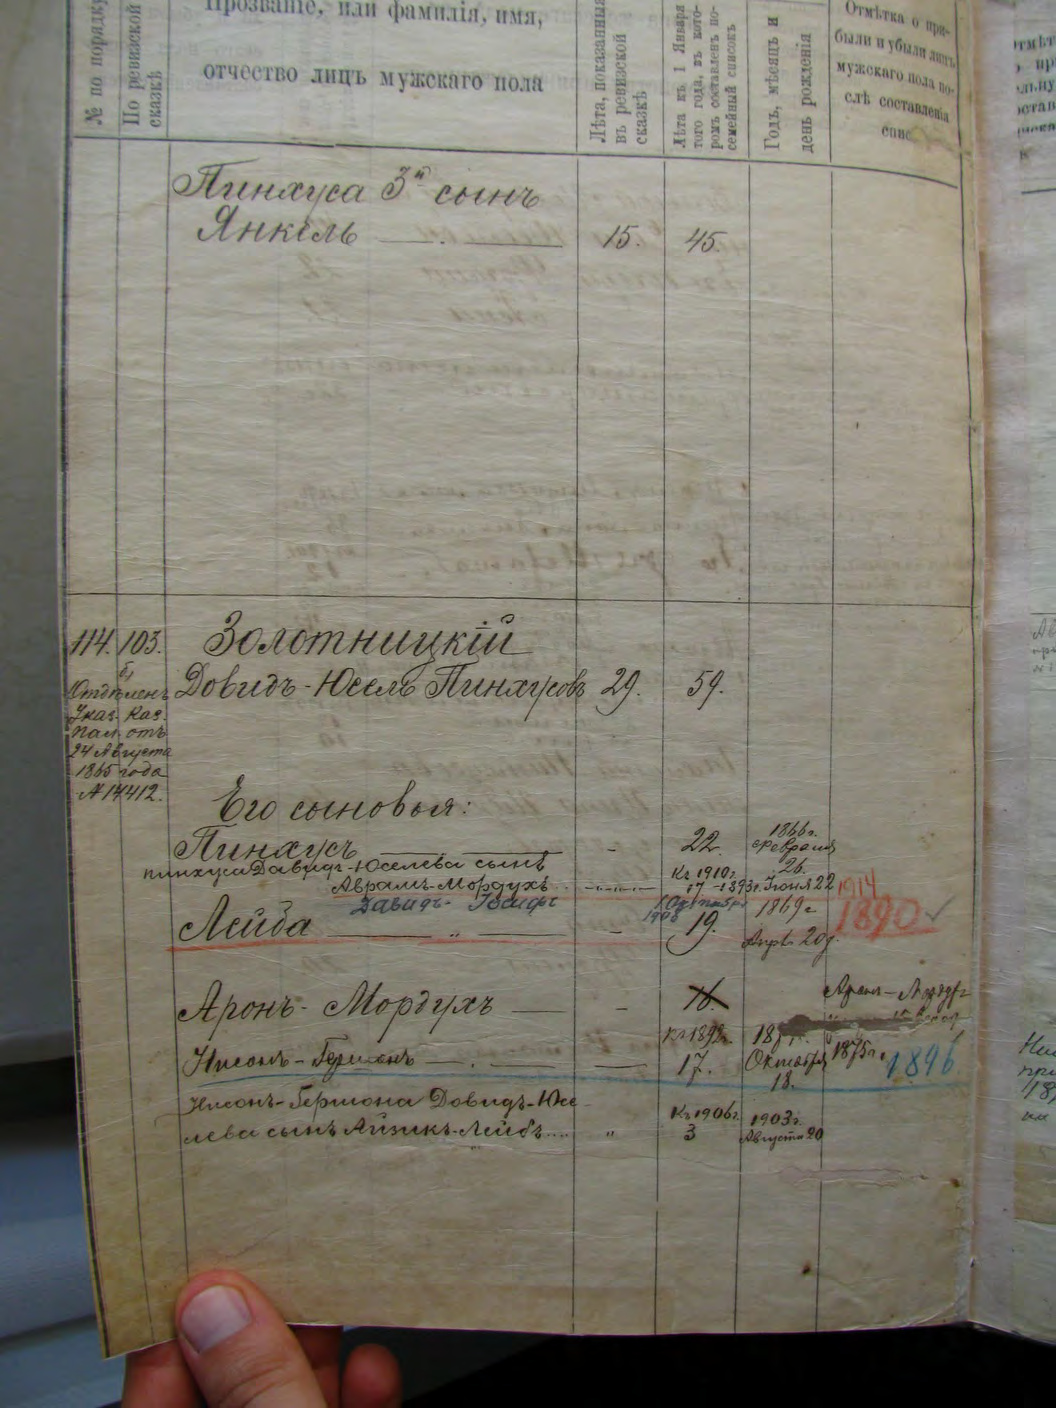 № по порядку
По ревизской сказкѣ
Прозваніе, или фамилія, имя,
отчество лицъ мужскаго пола
Лѣта, показанныя
въ ревизской
сказкѣ
Лѣта къ 1 Января
того года, въ кото-
ромъ составленъ по-
семейный списокъ
Годъ, мѣсяцъ и
день рожденія
Отмѣтка о при-
были и убыли лицъ
мужскаго пола по-
слѣ составленія
спис
Пинхуса 3й сынъ
Янкель 15. 45.
114. 103.
Золотницкій
Довидъ-Юсель Пинхусовъ 29. 59.
Отдѣленъ
Указ. Каз.
Пал. отъ
24 Августа
1865 года
№ 14412.
Его сыновья:
Пинхусъ - 22. 1866 г. Февраля 26.
Пинхуса Давидъ-Юселева сынъ
Аврамъ-Мордухъ Къ 1910 г. 17 - 1893 г. Іюня 22
1914
Давидъ- Іосифъ 1908
Лейба - 19. 1869 г. Апр. 20 д. 1890
Аронъ-Мордухъ - 16. Аронъ-Мордухъ
Нисонъ-Гершонъ Къ 1892 г. 17. Октября 18. 1875 г. 1896
Нисонъ-Гершона Довидъ-Юсе
лева сынъ Айзикъ-Лейбъ.... " Къ 1906 г. 3 1903 г. Августа 20